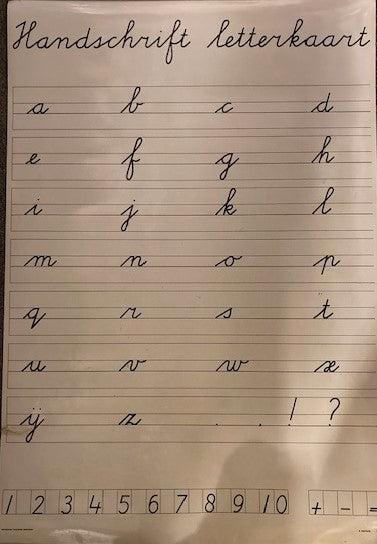 Handschrift letterkaart
a b c d
e f g h
i j k l
m n o p
q r s t
u v w x
ij z . , ! ?
1 2 3 4 5 6 7 8 9 10 + - =